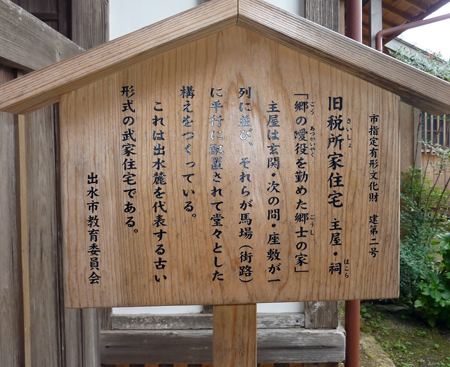 市指定有形文化財　建第二号
旧税所家住宅　主屋・祠
さいしょ
ほこら
「郷の噯役を勤めた郷士の家」
ごう
あつかいやく
ごうし
主屋は玄関・次の間・座敷が一
列に並び、それらが馬場（街路）
に平行に配置されて堂々とした
構えをつくっている。
これは出水麓を代表する古い
形式の武家住宅である。
出水市教育委員会